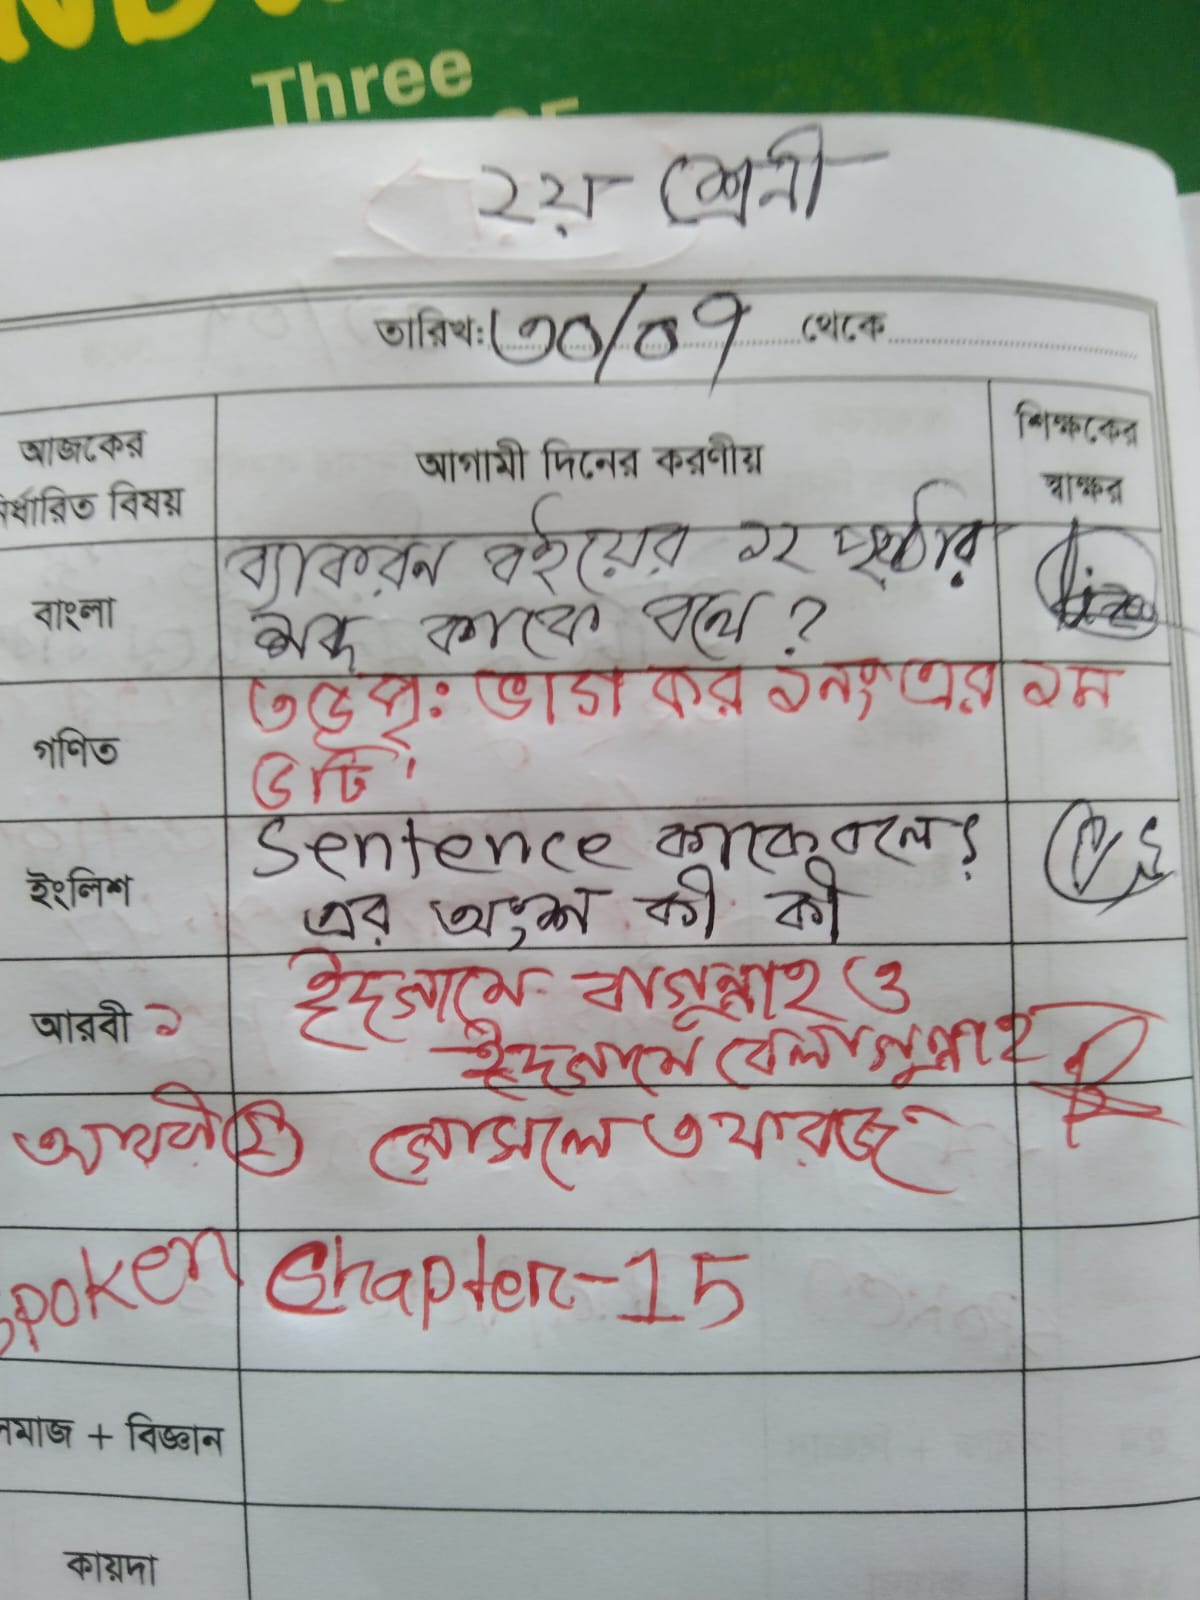 Three
২য় শ্রেনী
তারিখ: ৩০/০৭ থেকে
আজকের
নির্ধারিত বিষয়
আগামী দিনের করণীয়
শিক্ষকের
স্বাক্ষর
বাংলা
ব্যাকরন বইয়ের ১২ পৃষ্ঠার
শব্দ কাকে বলে ?
গণিত
৩৬পৃ: ভাগ কর ১নং এর ১ম
৬টি।
ইংলিশ
Sentence কাকে বলে?
এর অংশ কী কী
আরবী ১
ইদগামে বাগুন্নাহ ও
ইদগামে বেলাগুন্নাহ
আরবী ২
গোসলে ৩ ফরজ
Spoken
Chapter-15
সমাজ + বিজ্ঞান
কায়দা